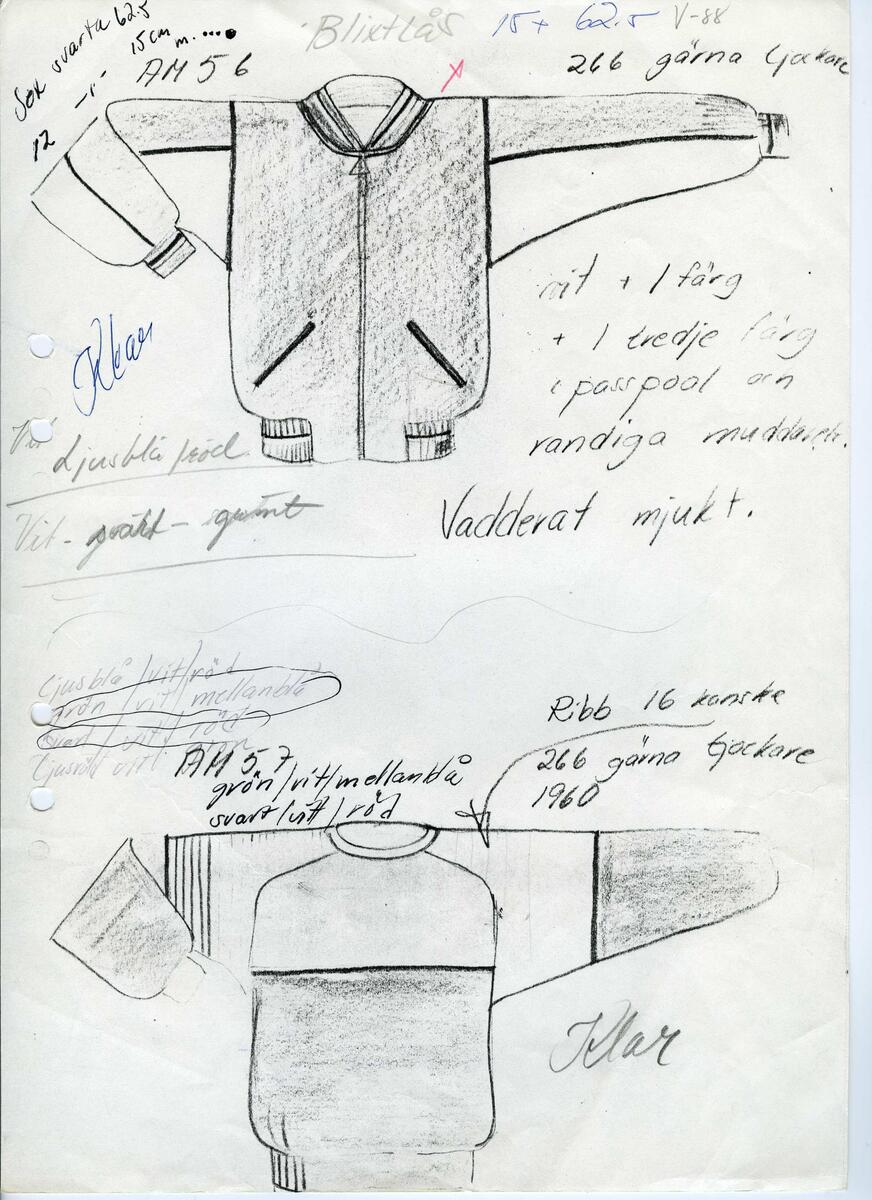 Blixtlås
15 + 62.5
V-88
svarta 62.5
15 cm m.....
12 -"-
AM 56
266 gärna tjockare
vit + 1 färg
+ 1 tredje färg
i passpoal och
randiga muddar
Klar
Vit
Ljusblå / röd
Vit -
Vadderat mjukt.
ljusblå / vit / röd
grön / vit / mellanblå
svart / vit / röd
AM 57
grön/vit/mellanblå
svart/vit/röd
Ribb 16 kanske
266 gärna tjockare
1960
Klar